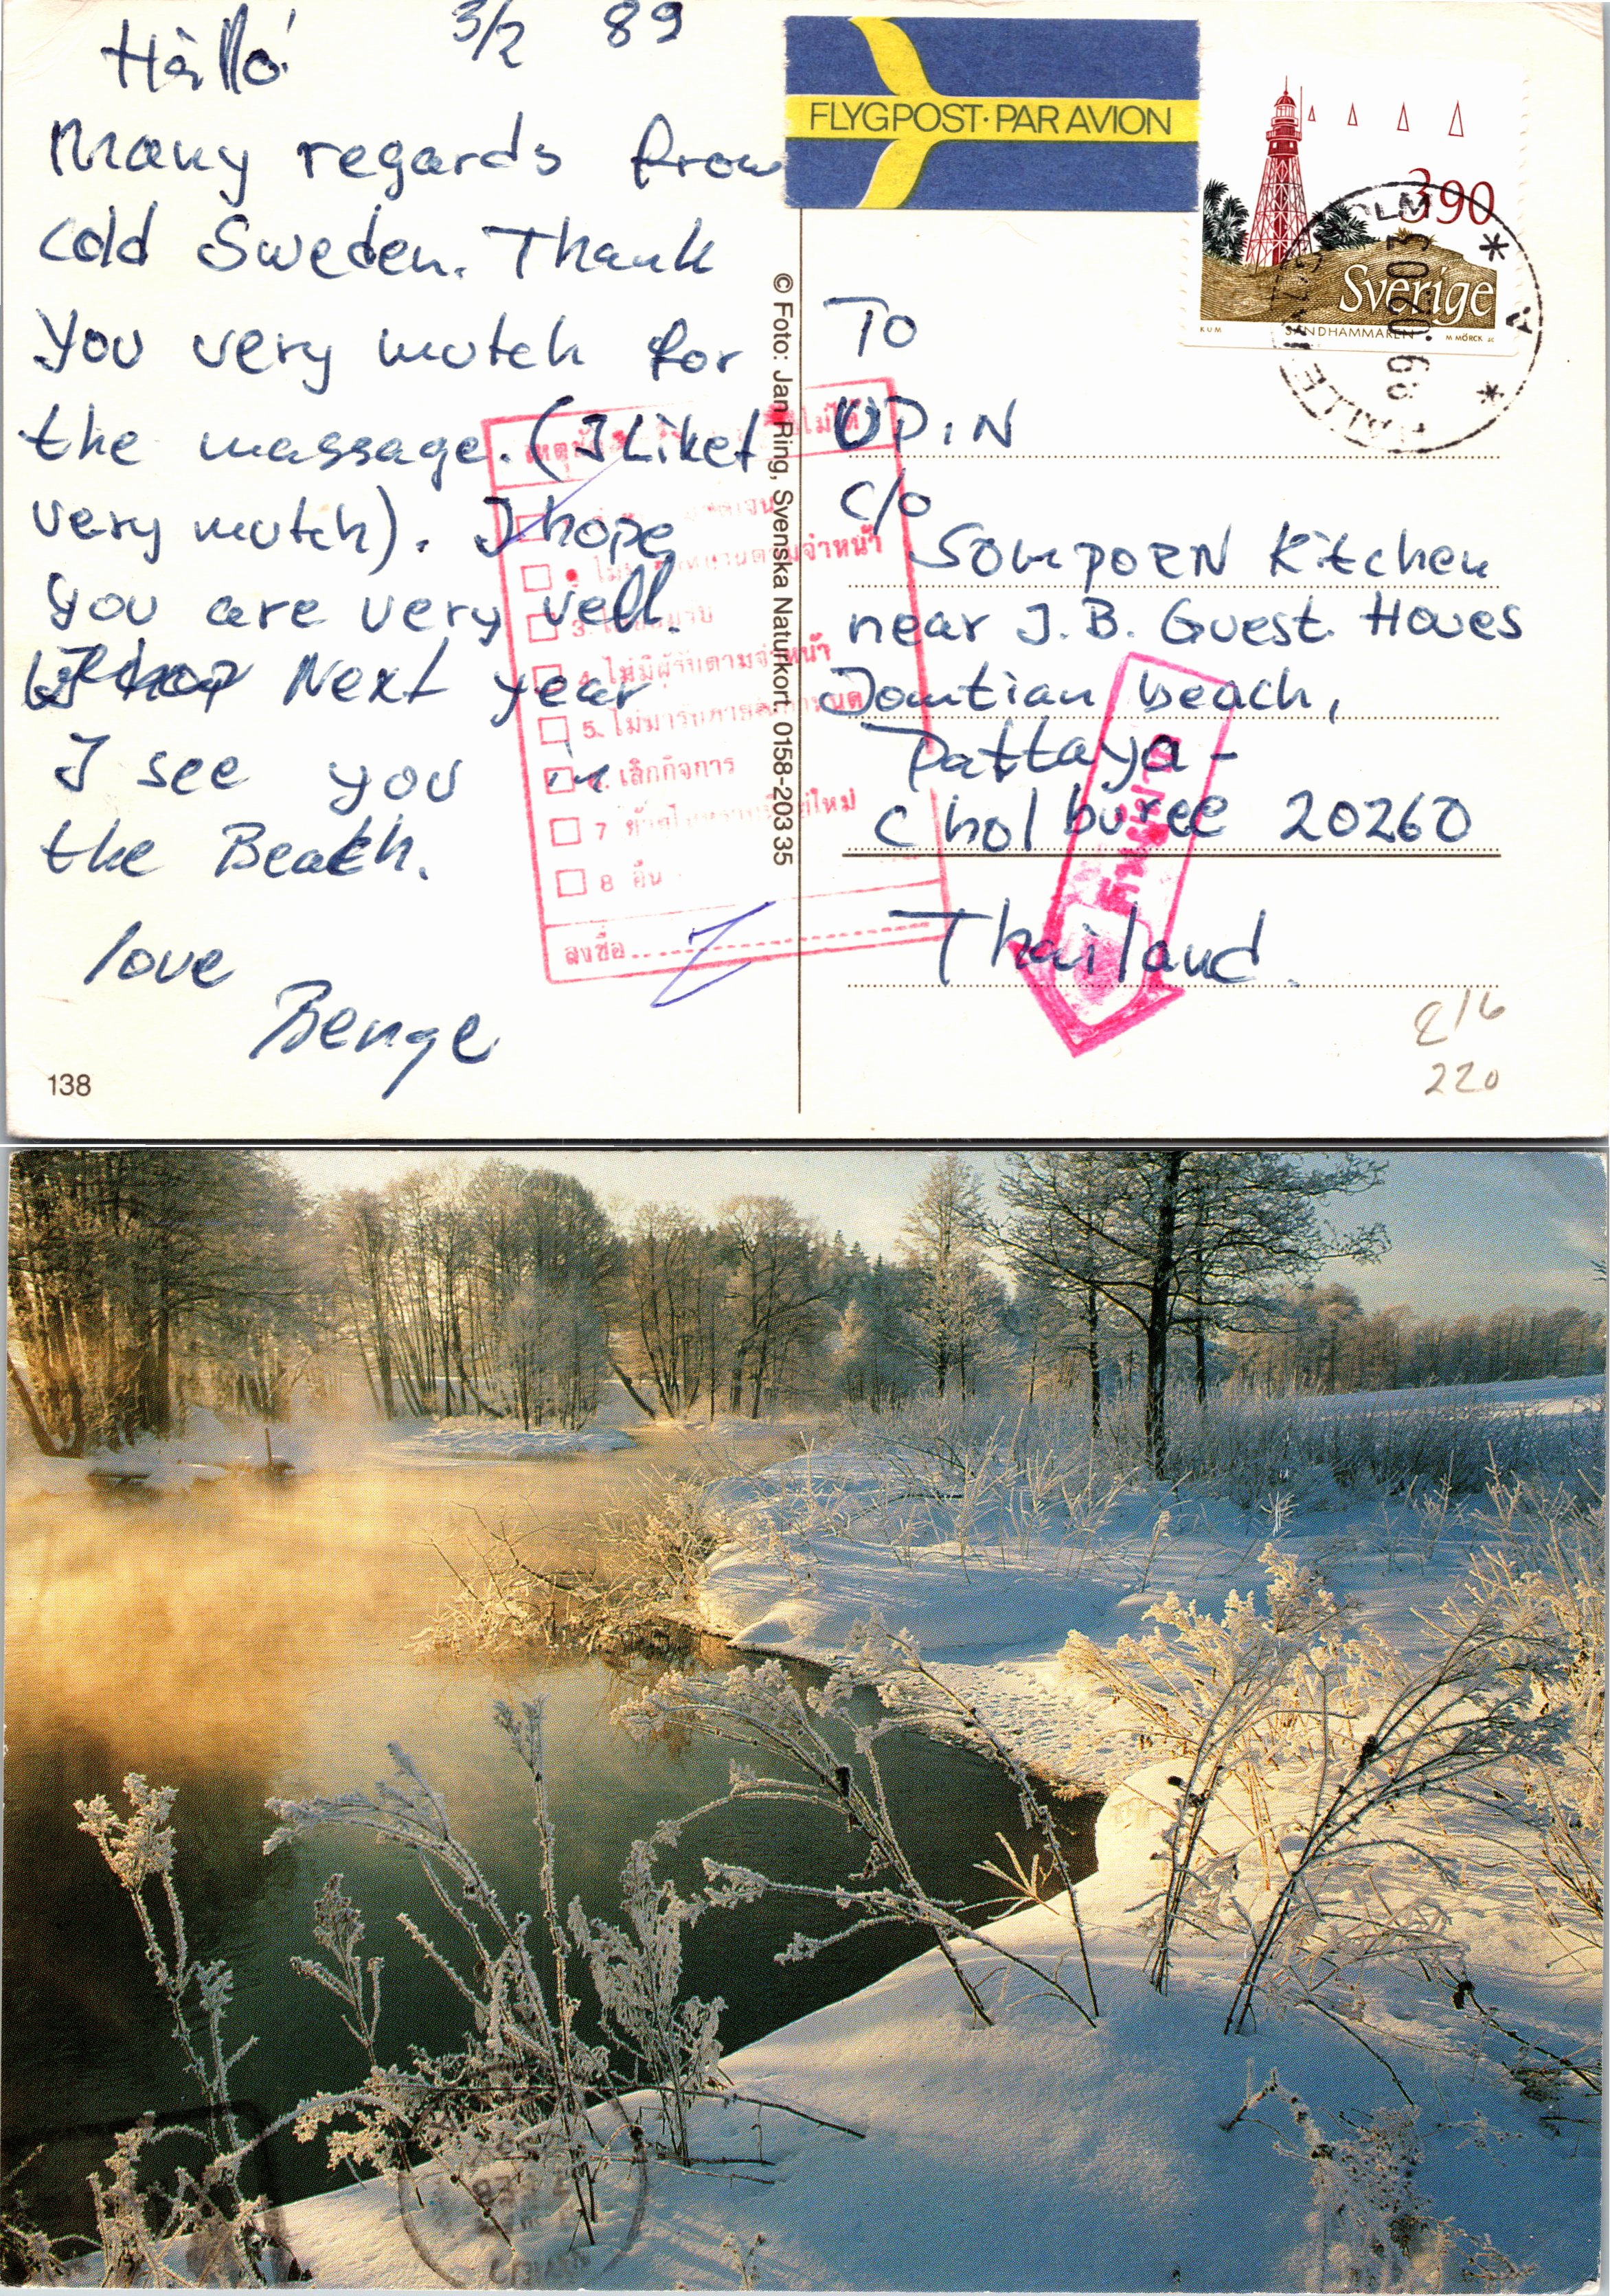 Hallo! 3/2 89
Many regards from
cold Sweden. Thank
you very mutch for
the massage. (I Liket
very mutch). I hope
you are very vell.
Next year
I see you in
the Beach.
love
Benge
138
© Foto: Jan Ring, Svenska Naturkort. 0158-203 35
FLYGPOST·PAR AVION
390
Sverige
KUM SANDHAMMAREN M MÖRCK SC
To
UPIN
c/o
SOMPORN Kitchen
near J.B. Guest. Houes
Jomtian beach,
Pattaya -
Cholburee 20260
Thailand.
220
4. ไม่มีผู้รับตามจ่าหน้า
6. เลิกกิจการ
8 อื่น
ลงชื่อ